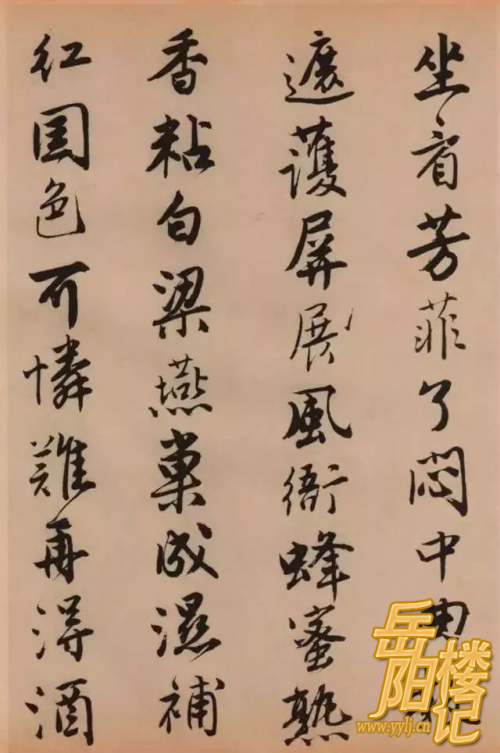 坐看芳菲了悶中曲
遮護屏展風衙蜂蜜熟
香粘白梁燕巢成濕補
紅国色可憐難再得酒
岳阳楼记
www.yylj.cn